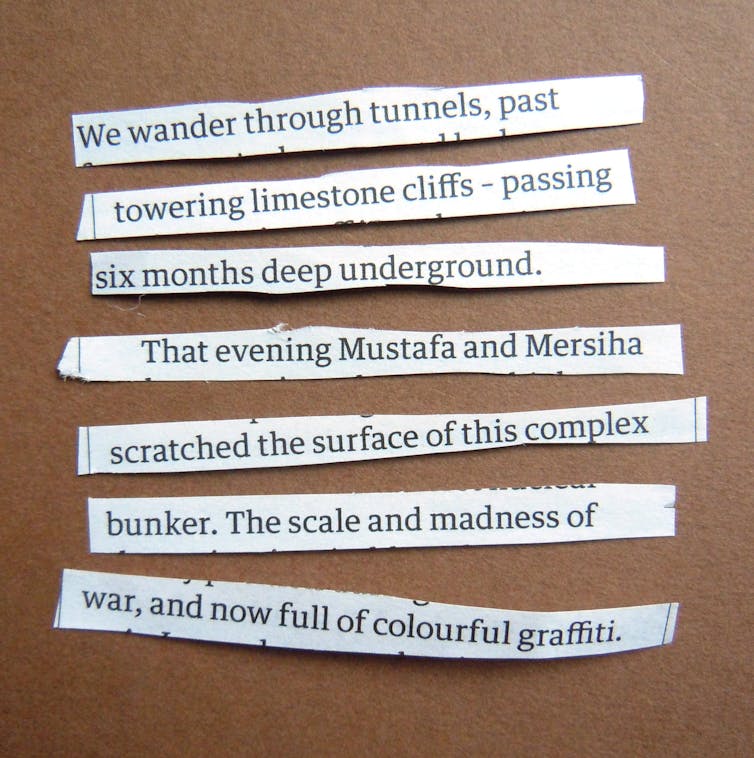 We wander through tunnels, past
towering limestone cliffs – passing
six months deep underground.
That evening Mustafa and Mersiha
scratched the surface of this complex
bunker. The scale and madness of
war, and now full of colourful graffiti.